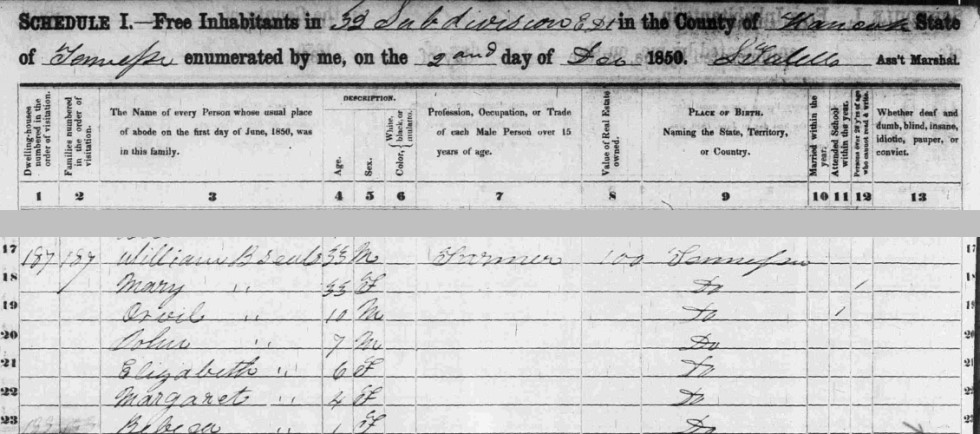 SCHEDULE I.—Free Inhabitants in 33 Subdivision E D in the County of Hancock State
of Tennessee enumerated by me, on the 2nd day of Dec 1850. Ass't Marshal.
Dwelling-houses numbered in the order of visitation.
Families numbered in the order of visitation.
The Name of every Person whose usual place of abode on the first day of June, 1850, was in this family.
DESCRIPTION.
Age.
Sex.
Color, { White, black, or mulatto.
Profession, Occupation, or Trade of each Male Person over 15 years of age.
Value of Real Estate owned.
PLACE OF BIRTH. Naming the State, Territory, or Country.
Married within the year.
Attended School within the year.
Persons over 20 y'rs of age who cannot read & write.
Whether deaf and dumb, blind, insane, idiotic, pauper, or convict.
1 2 3 4 5 6 7 8 9 10 11 12 13
17 187 187 William B 33 M Farmer 100 Tennessee 17
18 Mary " 33 F Do / 18
19 Orvil " 10 M Do / 19
20 John " 7 M Do 20
21 Elizabeth " 6 F Do 21
22 Margaret " 4 F Do 22
23 " 1 F Do 23